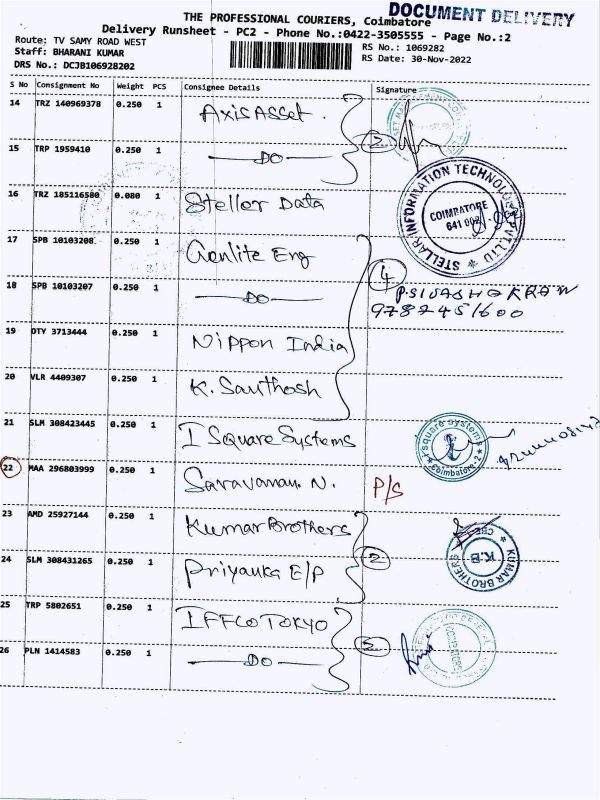 DOCUMENT DELIVERY
THE PROFESSIONAL COURIERS, Coimbatore
Delivery Runsheet - PC2 - Phone No.:0422-3505555 - Page No.:2
Route: TV SAMY ROAD WEST
RS No.: 1069282
Staff: BHARANI KUMAR
RS Date: 30-Nov-2022
DRS No.: DCJB106928202
S No Consignment No Weight PCS Consignee Details Signature
14 TRZ 140969378 0.250 1 Axis Asset.
15 TRP 1959410 0.250 1 DO 3
16 TRZ 185116580 0.080 1 Steller Data
STELLAR INFORMATION TECHNOLOGY PVT. LTD
COIMBATORE
641 002
17 SPB 10103208 0.250 1 Genlite Eng 4
18 SPB 10103207 0.250 1 DO
9787451600
19 DTY 3713444 0.250 1 Nippon India
20 VLR 4409307 0.250 1 K. Santhosh
21 SLM 308423445 0.250 1 I Square Systems
I square systems
Coimbatore-2
22 MAA 296803999 0.250 1 Saravanan. N. P/S
23 AMD 25927144 0.250 1 Kumar Brothers
KUMAR BROTHERS
K.B
CBE
24 SLM 308431265 0.250 1 Priyanka E/P 2
25 TRP 5802651 0.250 1 IFFCO TOKYO
26 PLN 1414583 0.250 1 DO